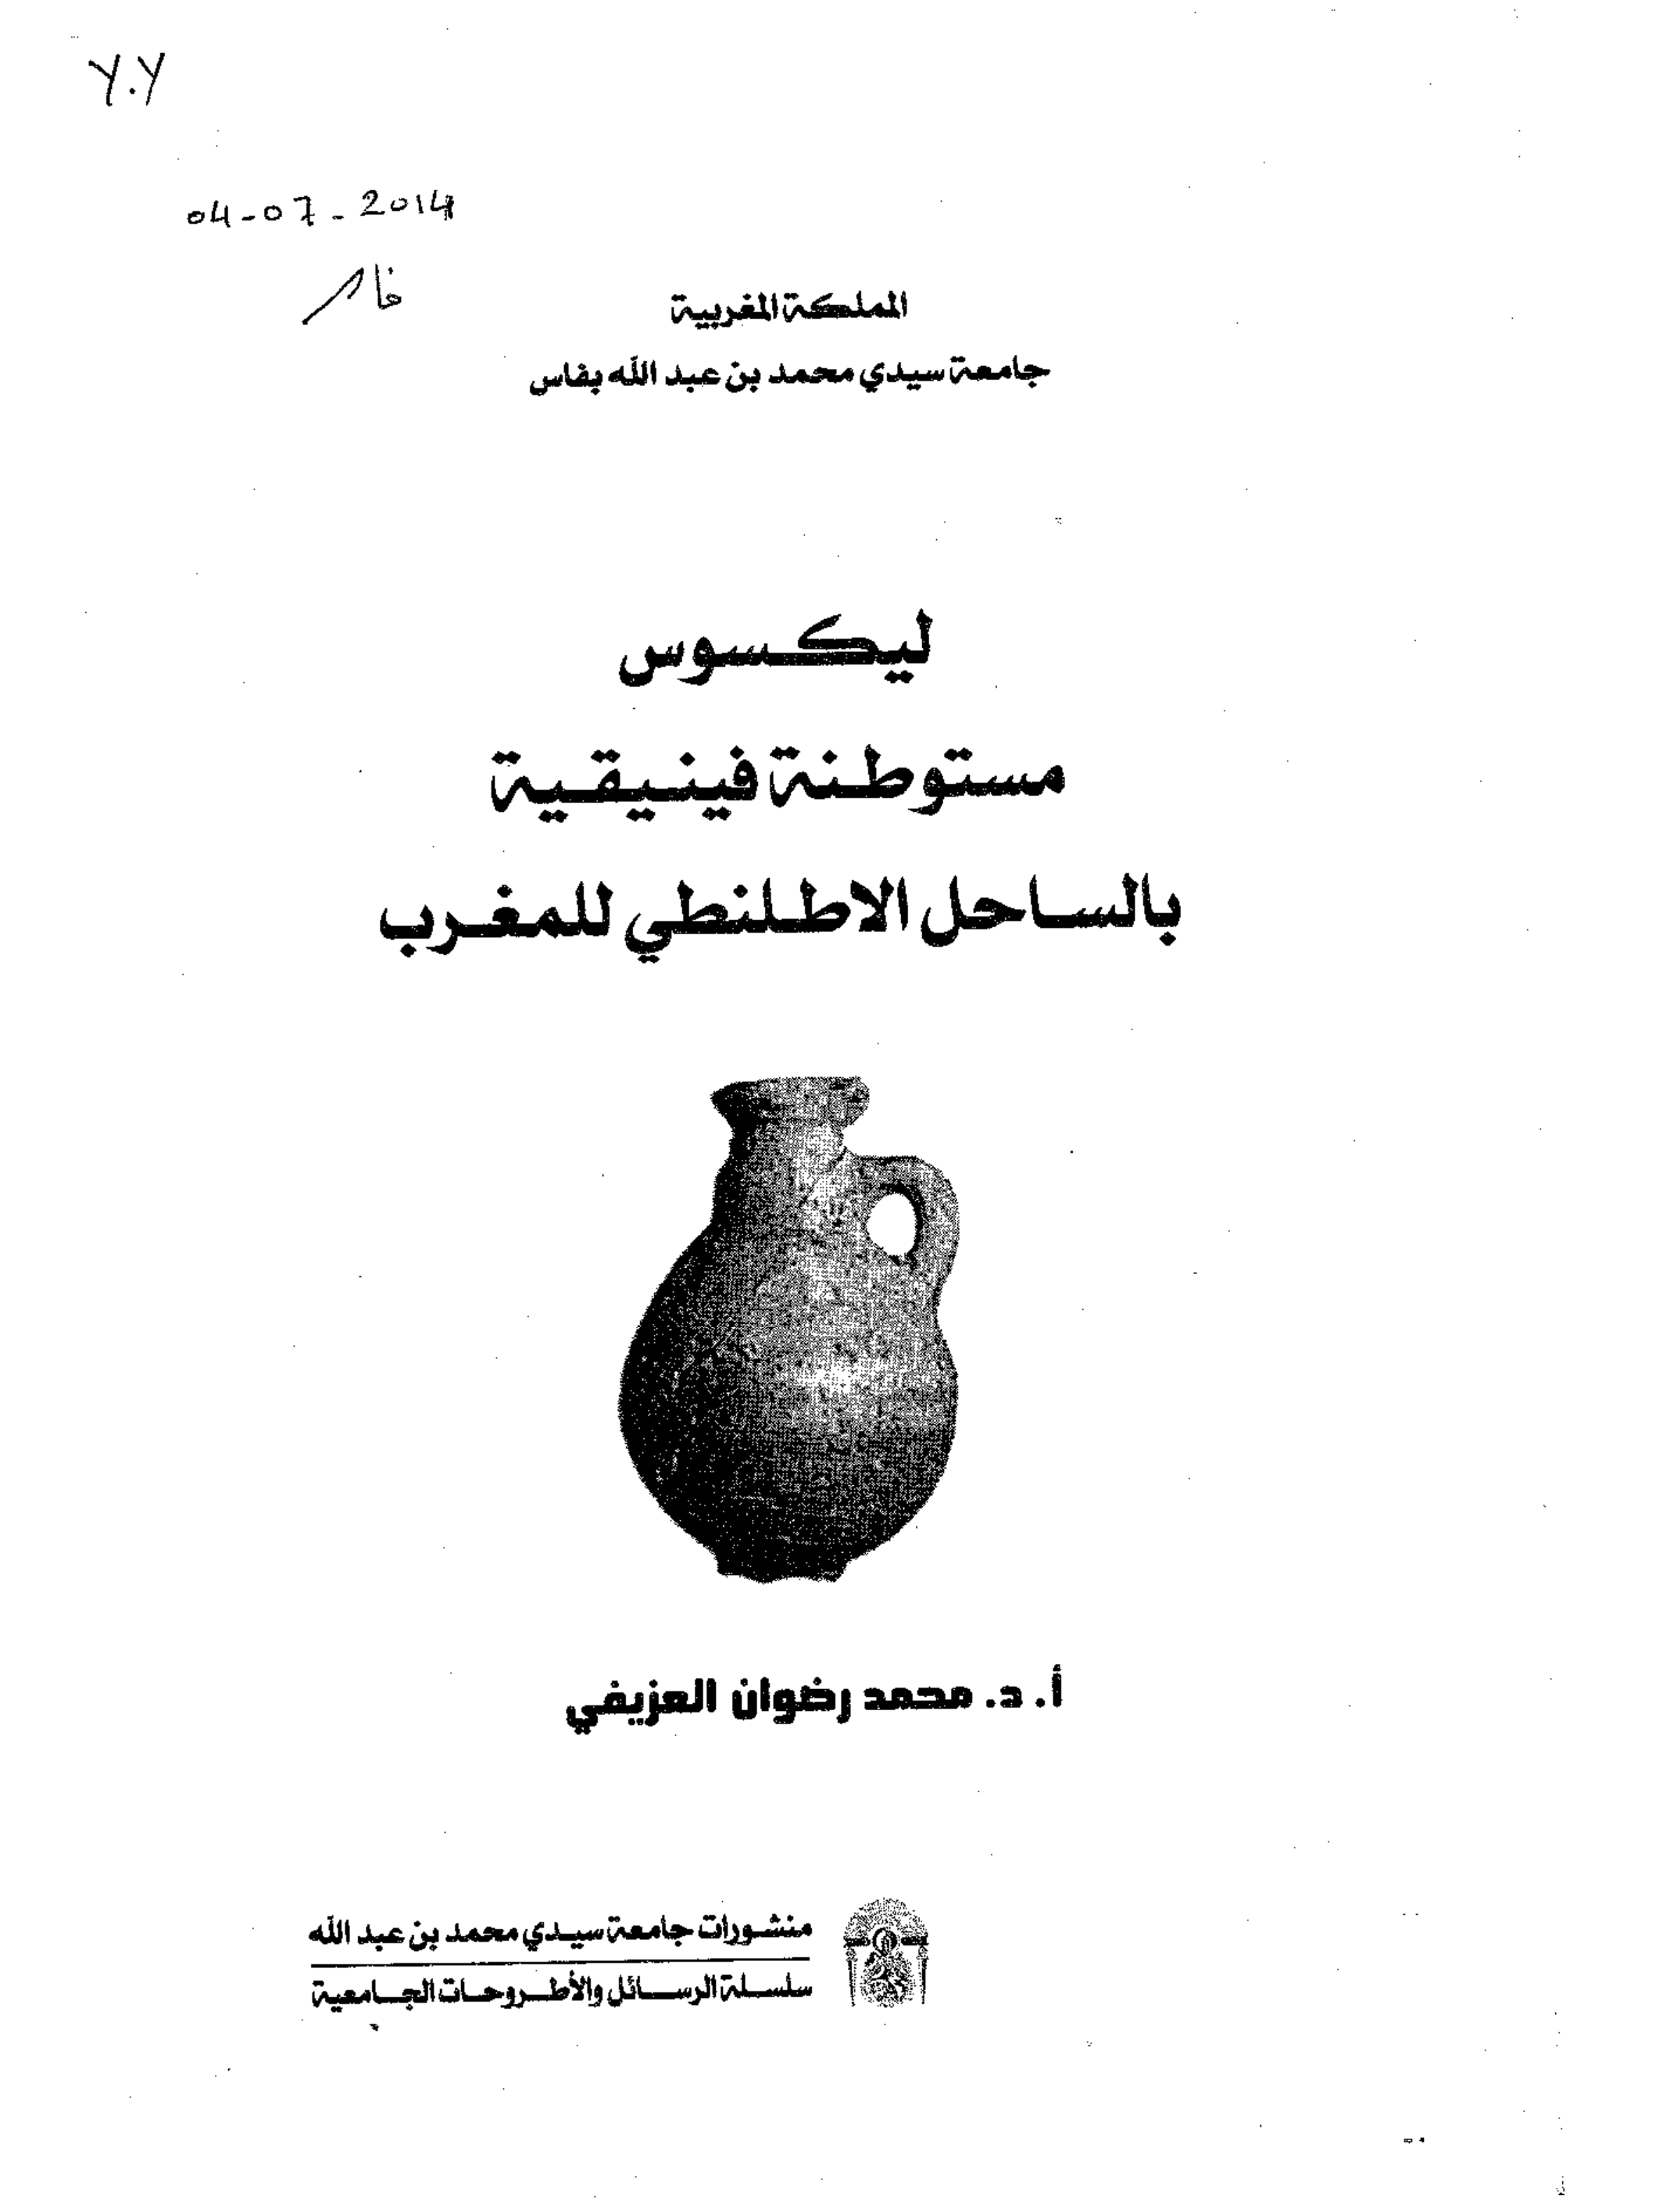 04-07-2014
المملكة المغربية
جامعة سيدي محمد بن عبد الله بفاس
ليكسوس
مستوطنة فينيقية
بالساحل الاطلنطي للمغرب
أ. د. محمد رضوان العزيفي
منشورات جامعة سيدي محمد بن عبد الله
سلسلة الرسائل والأطروحات الجامعية